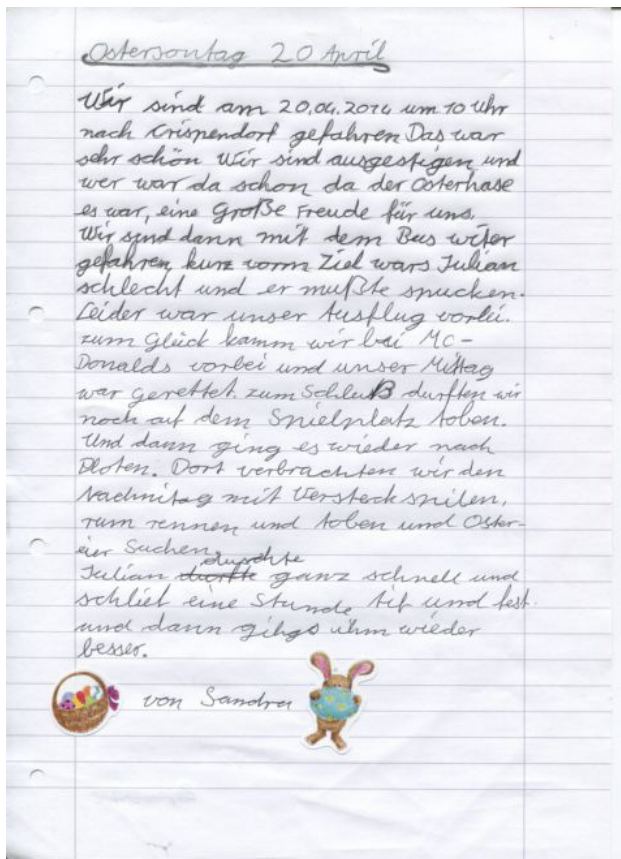 Ostersontag 20 April
Wir sind am 20.04.2014 um 10 Uhr
nach Crispendorf gefahren Das war
sehr schön Wir sind ausgestigen und
wer war da schon da der Osterhase
es war, eine Große Freude für uns.
Wir sind dann mit dem Bus witer
gefahren kurz vorm Ziel wars Julian
schlecht und er mußte spucken.
Leider war unser Ausflug vorbei.
zum Glück kamm wir bei Mc-
Donalds vorbei und unser Mittag
war gerettet. zum Schluß durften wir
noch auf dem Spielplatz toben.
Und dann ging es wieder nach
Ploten. Dort verbrachten wir den
Nachmitag mit Versteckspilen,
rum rennen und toben und Oster-
eier Suchen.
Julian duschte ganz schnell und
schlief eine Stunde tif und fest.
und dann gings ihm wieder
besser.
von Sandra